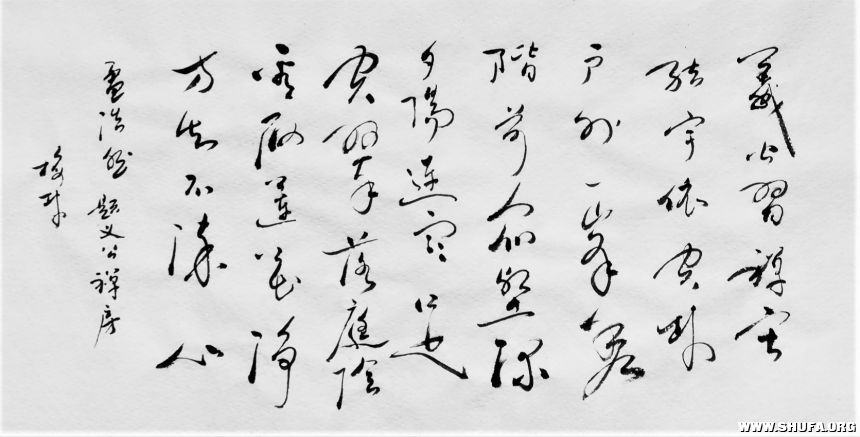 義公習禅寂
結宇依空林
户外一峯秀
階前众壑深
夕陽連雨足
空翠落庭陰
看取蓮花净
方知不染心
孟浩然題义公禅房
WWW.SHUFA.ORG